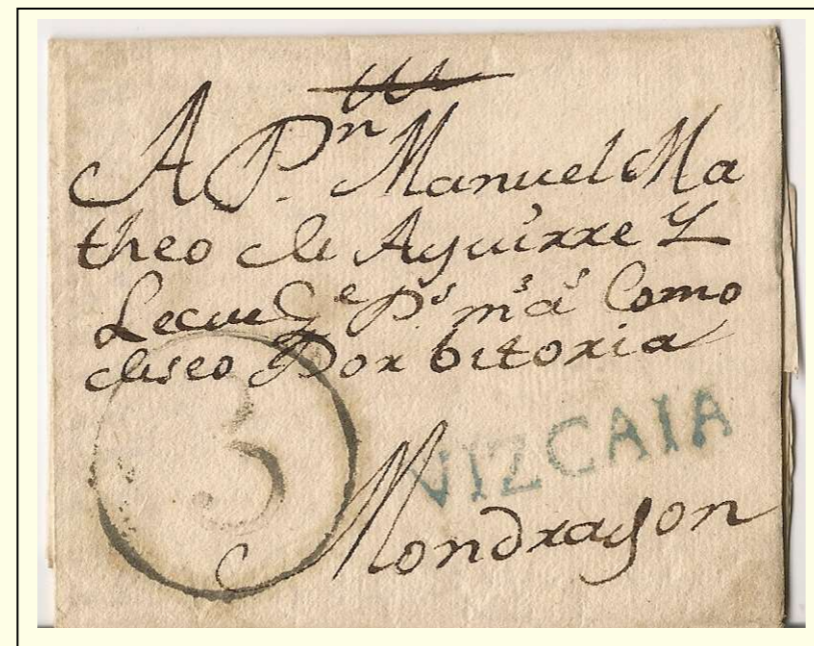 A Dn Manuel Ma
theo de Aguirre Y
Lecue Ge Ds ms as Como
deseo Por bitoria
3
VIZCAIA
Mondragon